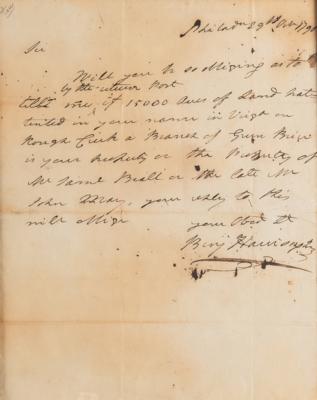 Philada 29th Octr 1796
Sir
Will you be so obliging as to
by the return Post
tell me, if 15000 Acres of Land
in your name in Virga on
Rough Creek a Branch of Green Brier
is your property or the property of
Mr Beall or the late Mr
John your reply to this
will oblige
your Obed St
Benj Harrison